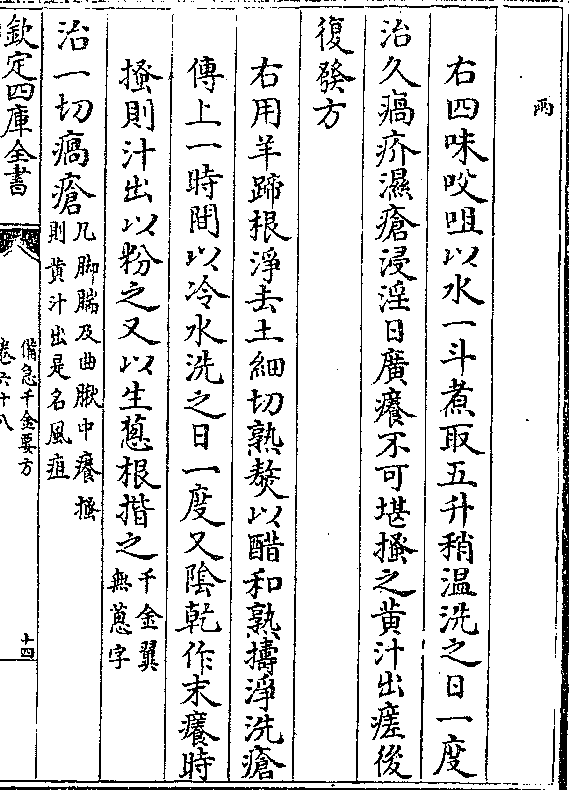 兩
右四味㕮咀以水一斗煮取五升稍温洗之日一度
治久瘑疥濕瘡浸淫日廣癢不可堪搔之黄汁出瘥後
復發方
右用羊蹄根淨去土細切熟熬以醋和熟擣淨洗瘡
傅上一時間以冷水洗之日一度又隂乾作末癢時
搔則汁出以粉之又以生葱根揩之千金翼無葱字
治一切瘑瘡凡脚腨及曲䐐中癢搔則黄汁出是名風疽
欽定四庫全書
備急千金要方
卷六十八
十四